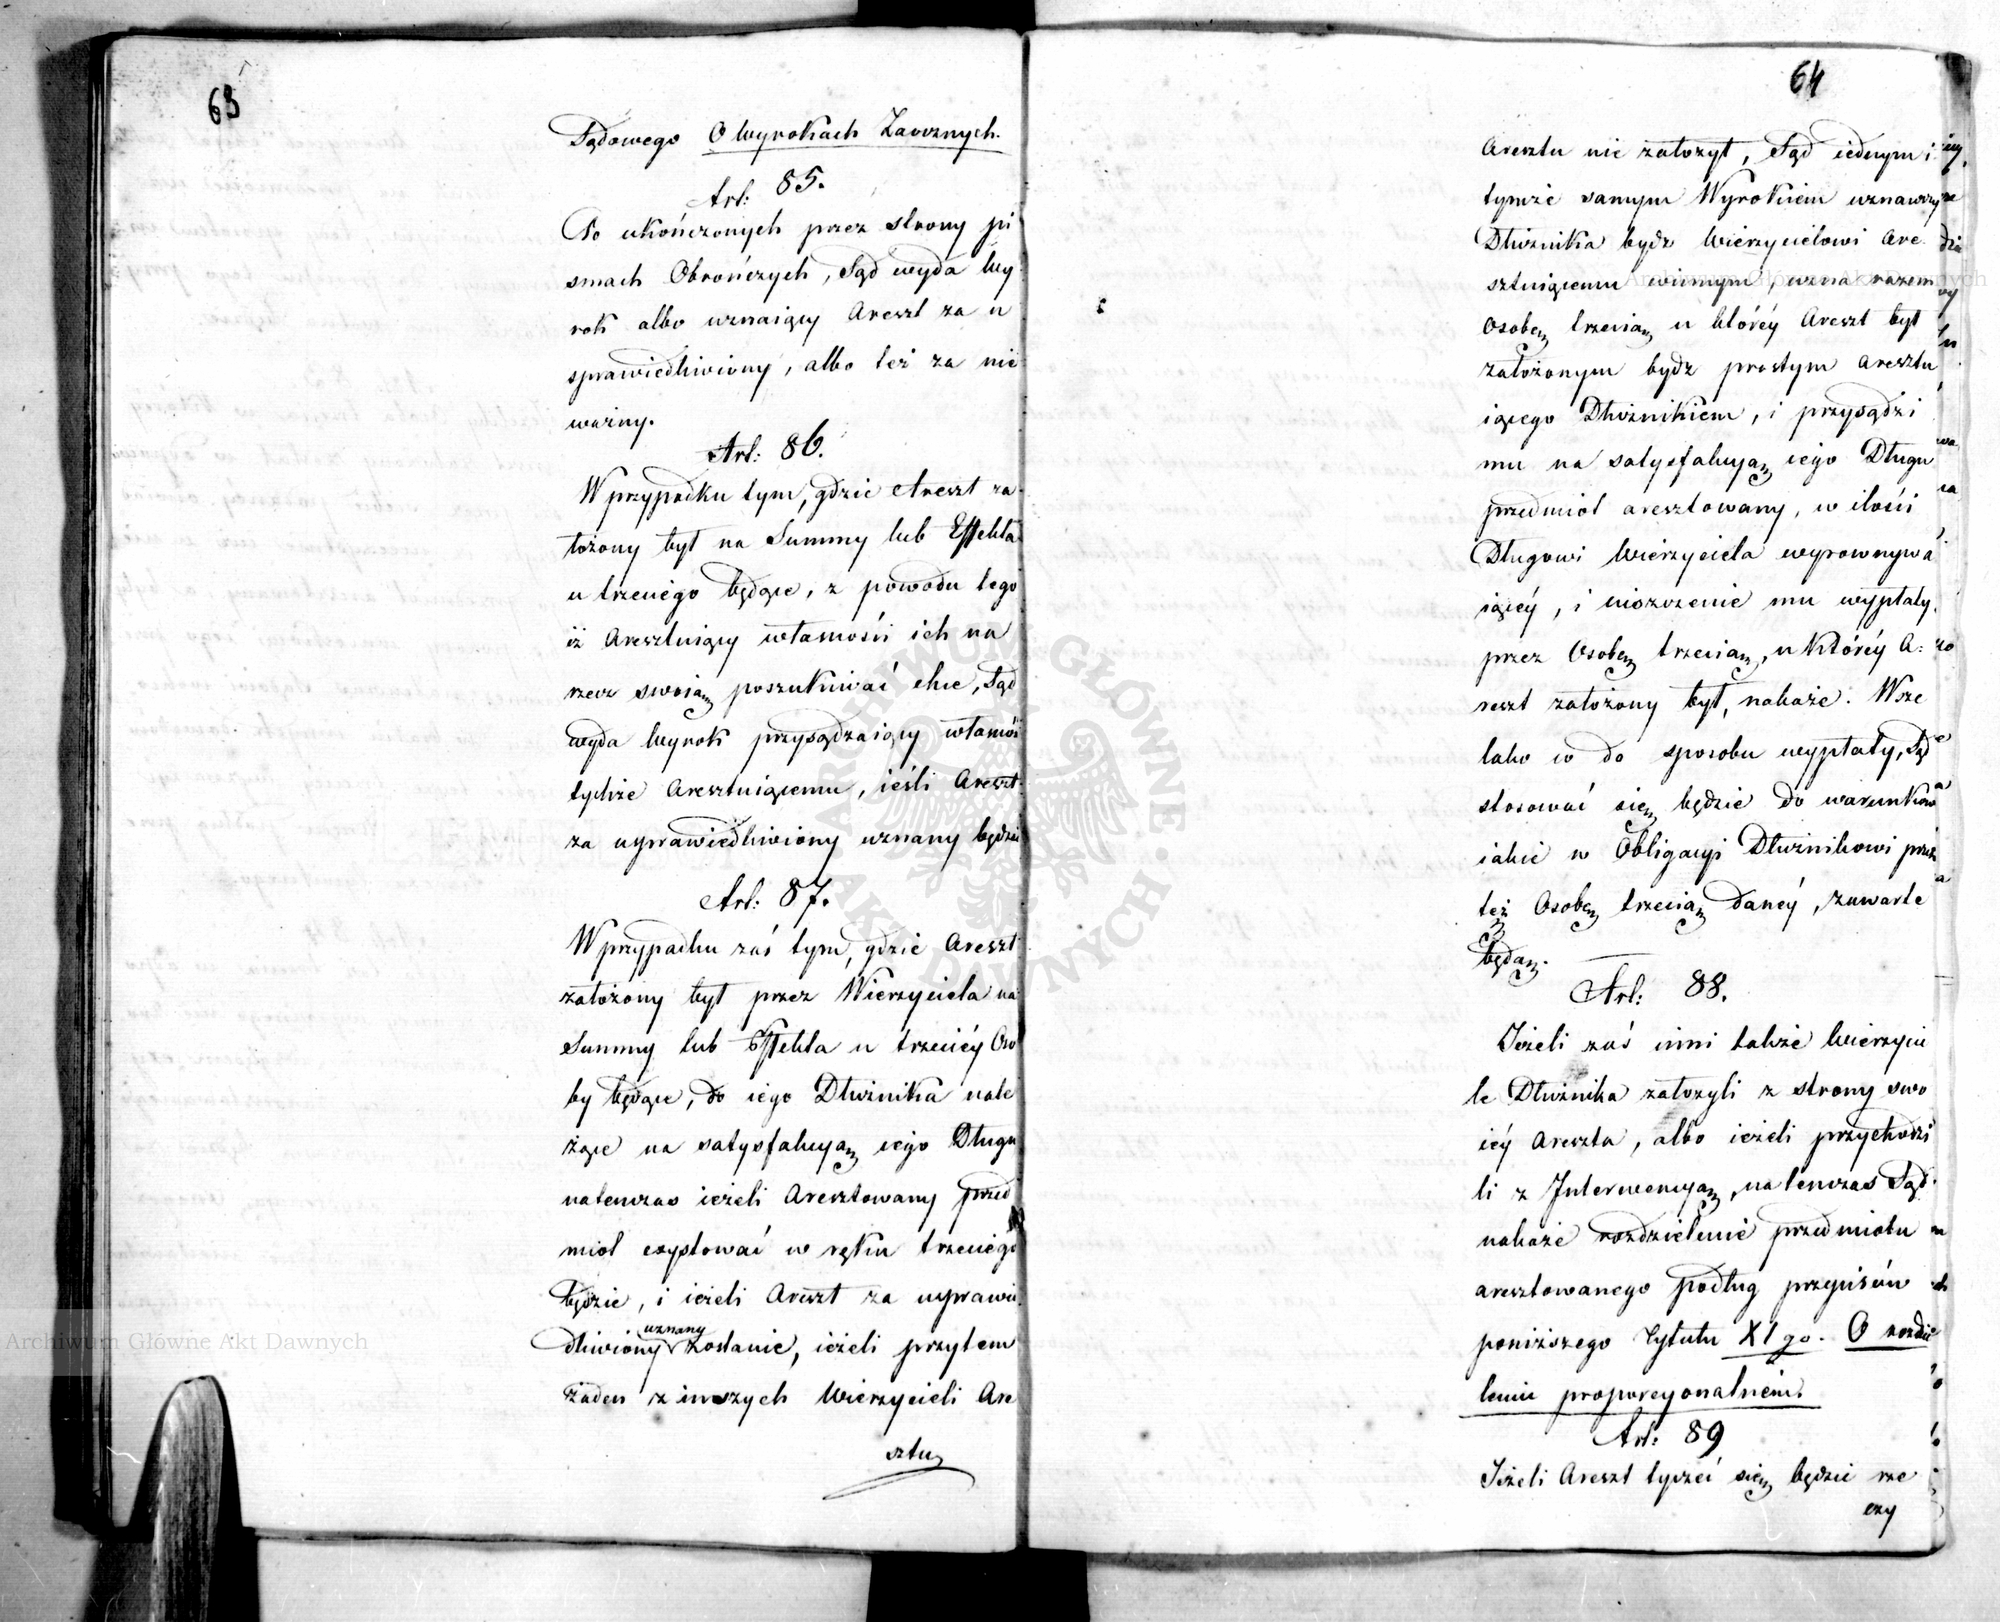 63
Sądowego O Wyrokach Zaocznych.
Art: 85.
Po ukończonych przez strony pi
smach Obrończych, Sąd wyda Wy
rok albo uznaiący Areszt za u
sprawiedliwiony, albo też za nie
ważny.
Art: 86.
W przypadku tym, gdzie Areszt za
łożony był na Summy lub Effekta
u trzeciego będące, z powodu tego
iż Aresztuiący własności ich na
rzecz swoią poszukiwać chce, Sąd
wyda Wyrok przysądzaiący własnoś
tychże Aresztuiącemu, ieśli Areszt
za usprawiedliwiony uznany będzie
Art: 87.
W przypadku zaś tym, gdzie Areszt
założony był przez Wierzyciela na
Summy lub Effekta u trzeciéy Oso
by będące, do iego Dłużnika nale
żące na satysfakcyą iego Długu
natenczas ieżeli Aresztowany przed
miot exystować w ręku trzeciego
będzie, i ieżeli Areszt za usprawie
dliwiony uznany zostanie, ieżeli przytem
żaden z inszych Wierzycieli Are
sztu
64
Aresztu nie założył, Sąd iednym i
tymże samym Wyrokiem uznawszy
Dłużnika bydź Wierzycielowi Are
sztuiącemu winnym, uzna razem
Osobę trzecią u któréy Areszt był
założonym bydź prostym Aresztu
iącego Dłużnikiem, i przysądzi
mu na satysfakcyą iego Długu
przedmiot aresztowany, w ilości
Długowi Wierzyciela wyrównywa
iącéy, i uiszczenie mu wypłaty
przez Osobę trzecią, u któréy A:
reszt założony był, nakaże. Wsze
lako co do sposobu wypłaty, Sąd
stosować się będzie do warunków
iakie w Obligacyi Dłużnikowi przez
też Osobę trzecią danéy, zawarte
będą.
Art: 88.
Jeżeli zaś inni także Wierzycie
le Dłużnika założyli z strony swo
iéy Areszta, albo ieżeli przychodzi
li z Interwencyą, natenczas Sąd
nakaże rozdzielenie przedmiotu
aresztowanego podług przepisów
poniższego Tytułu XIgo. O rozdzie
leniu proporcyonalném.
Art: 89
Jeżeli Areszt tyczeć się będzie rze
czy
ARCHIWUM GŁÓWNE AKT DAWNYCH
Archiwum Główne Akt Dawnych
Archiwum Główne Akt Dawnych